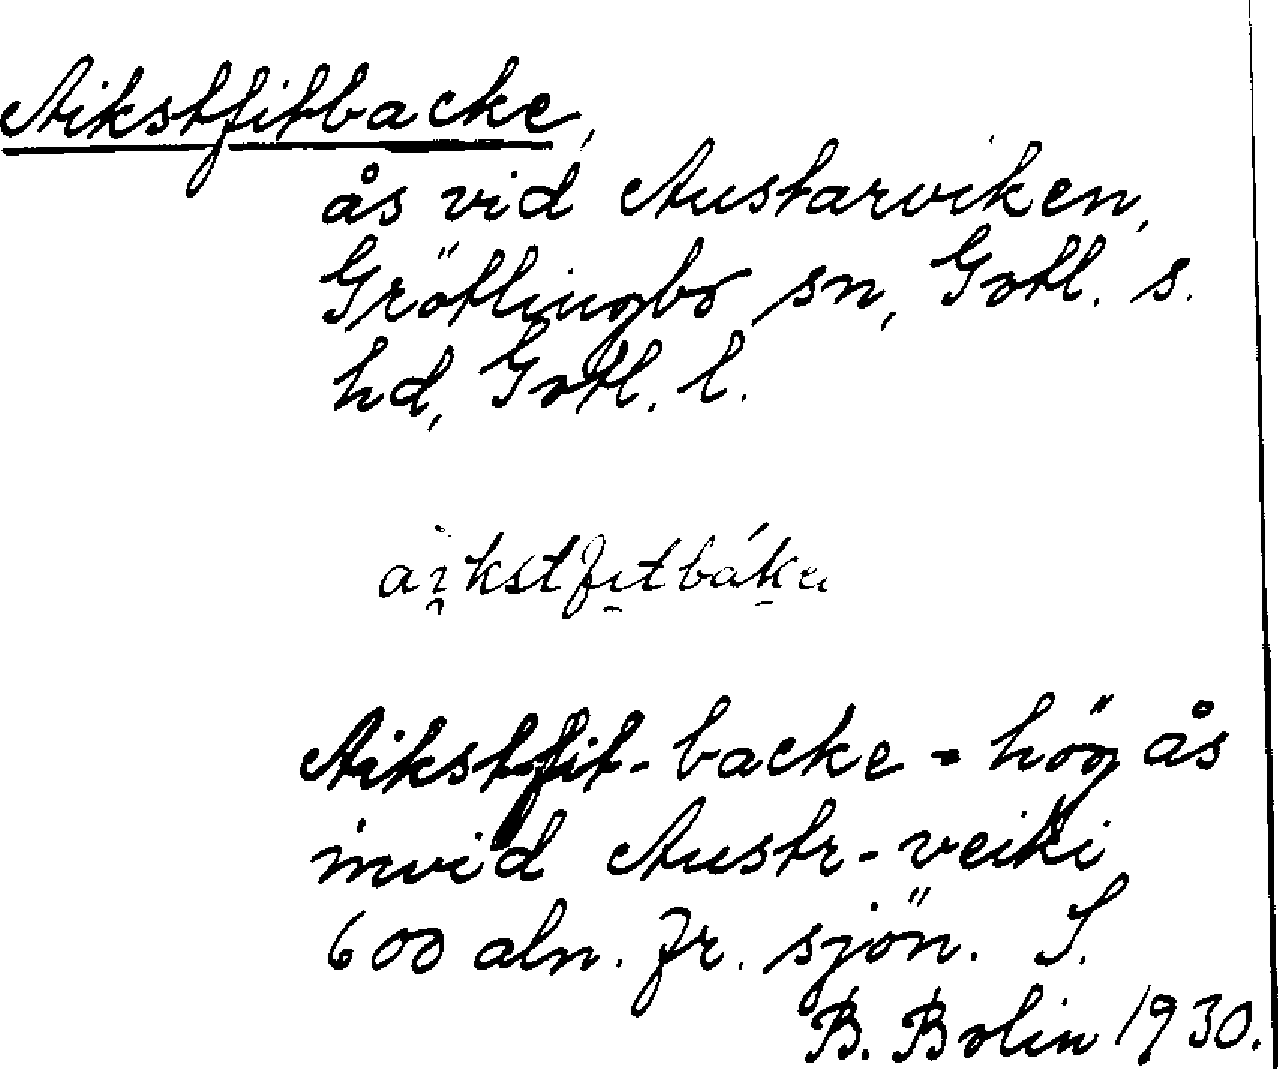 Aikstfitbacke,
ås vid Austarviken,
Grötlingbo sn, Gotl. s.
hd, Gotl. l.
ai̯kstfi̱tbák̠a
Aikstfit-backe - hög ås
invid Austr-veiki
600 aln. fr. sjön. S.
B. Bolin 1930.